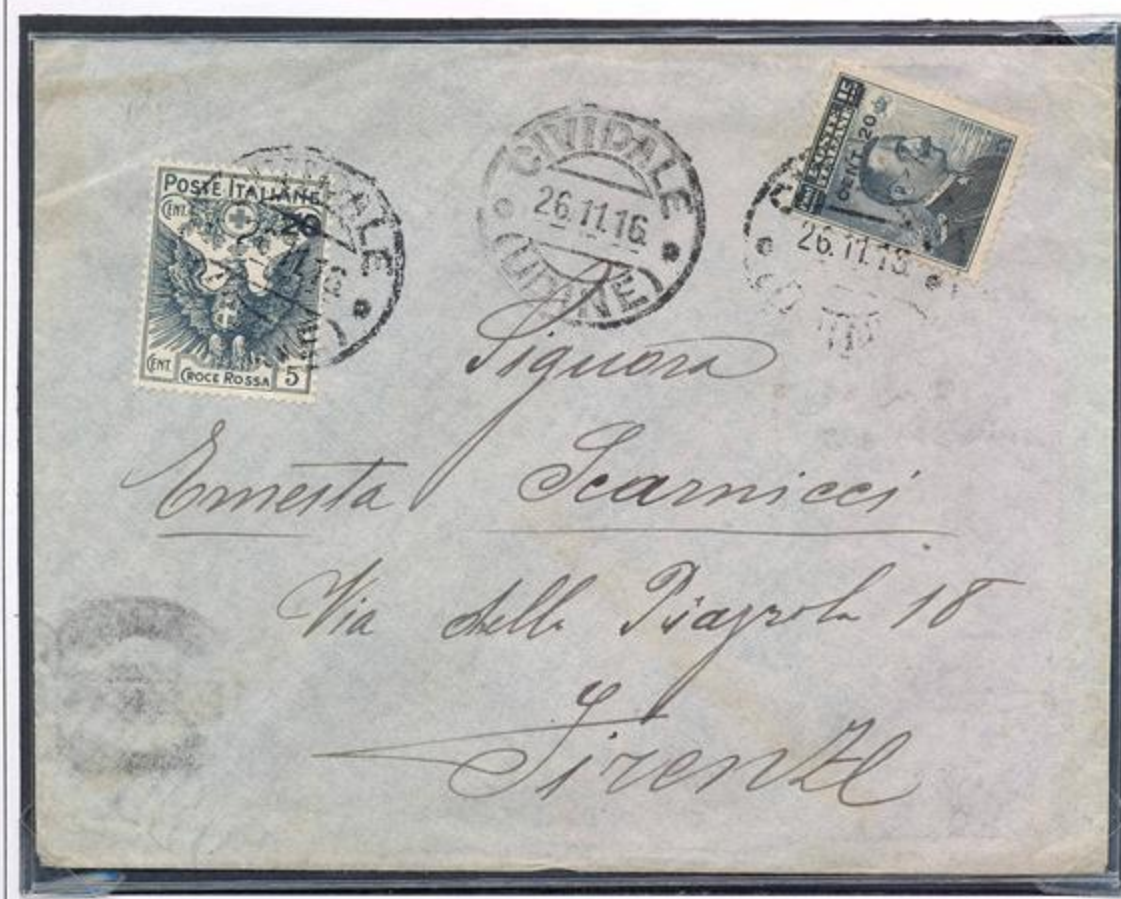 POSTE ITALIANE
CENT. 15
CENT. CROCE ROSSA 5
CIVIDALE
26.11.16.
(UDINE)
CENT. 20
26.11.16.
Signora
Ernesta Scarnicci
Via della 18
Firenze